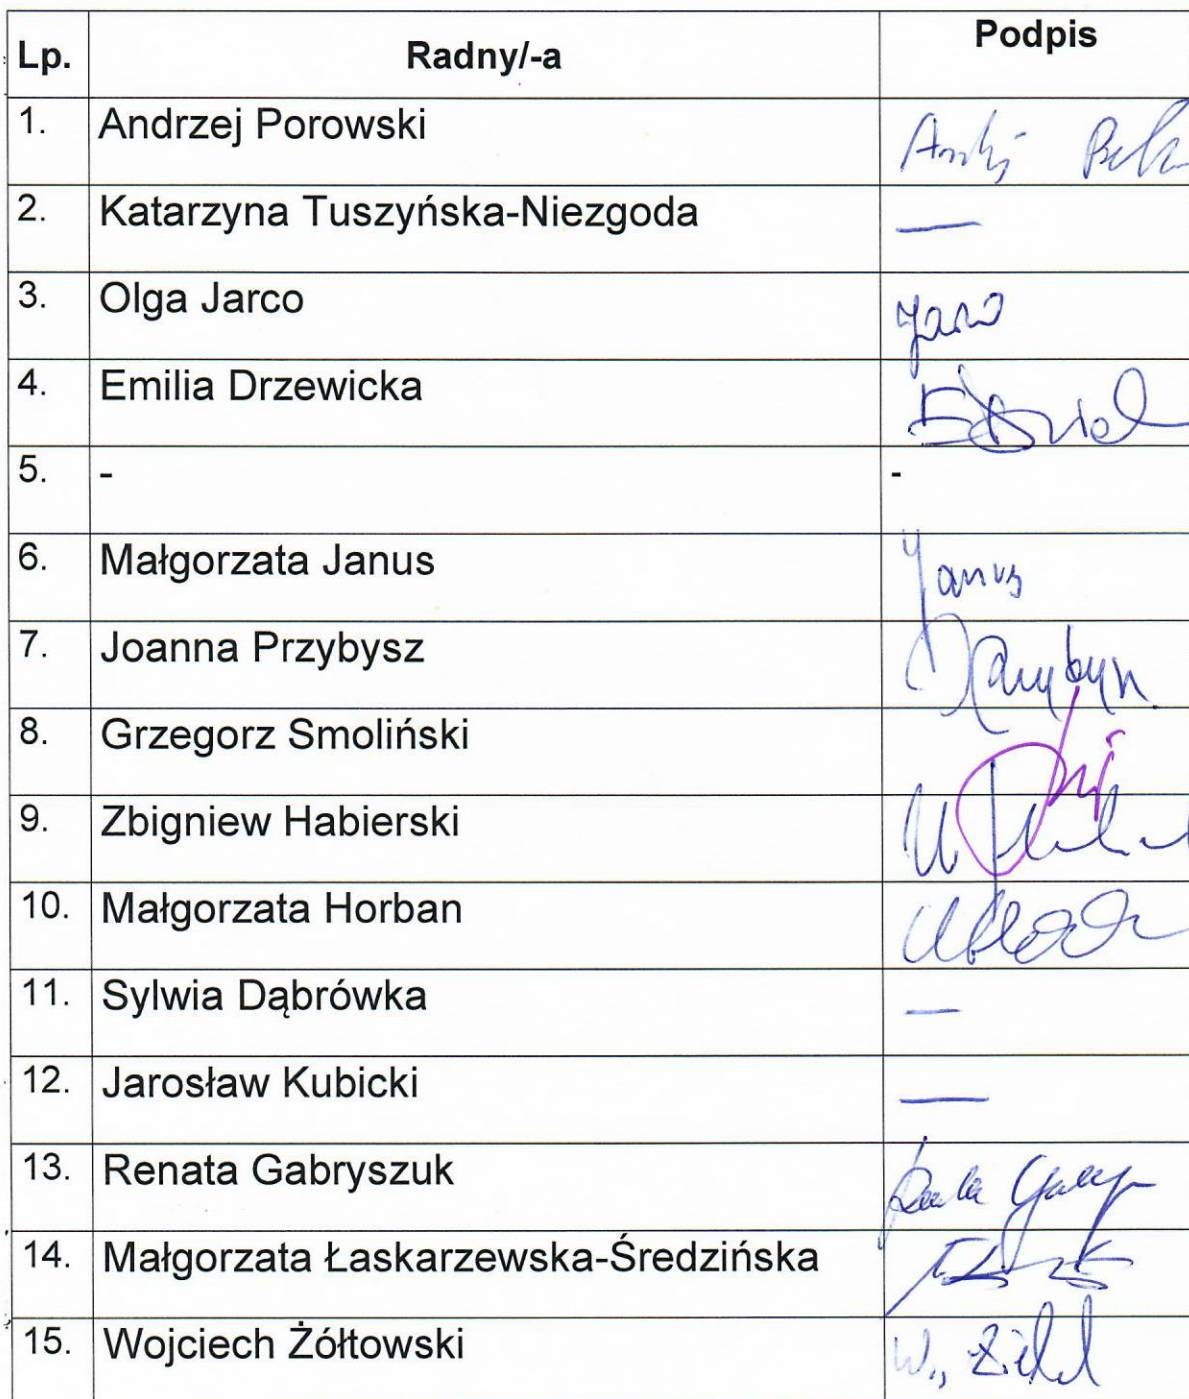 Lp. Radny/-a Podpis
1. Andrzej Porowski
2. Katarzyna Tuszyńska-Niezgoda —
3. Olga Jarco
4. Emilia Drzewicka
5. - -
6. Małgorzata Janus Janus
7. Joanna Przybysz
8. Grzegorz Smoliński
9. Zbigniew Habierski
10. Małgorzata Horban
11. Sylwia Dąbrówka —
12. Jarosław Kubicki —
13. Renata Gabryszuk
14. Małgorzata Łaskarzewska-Średzińska
15. Wojciech Żółtowski